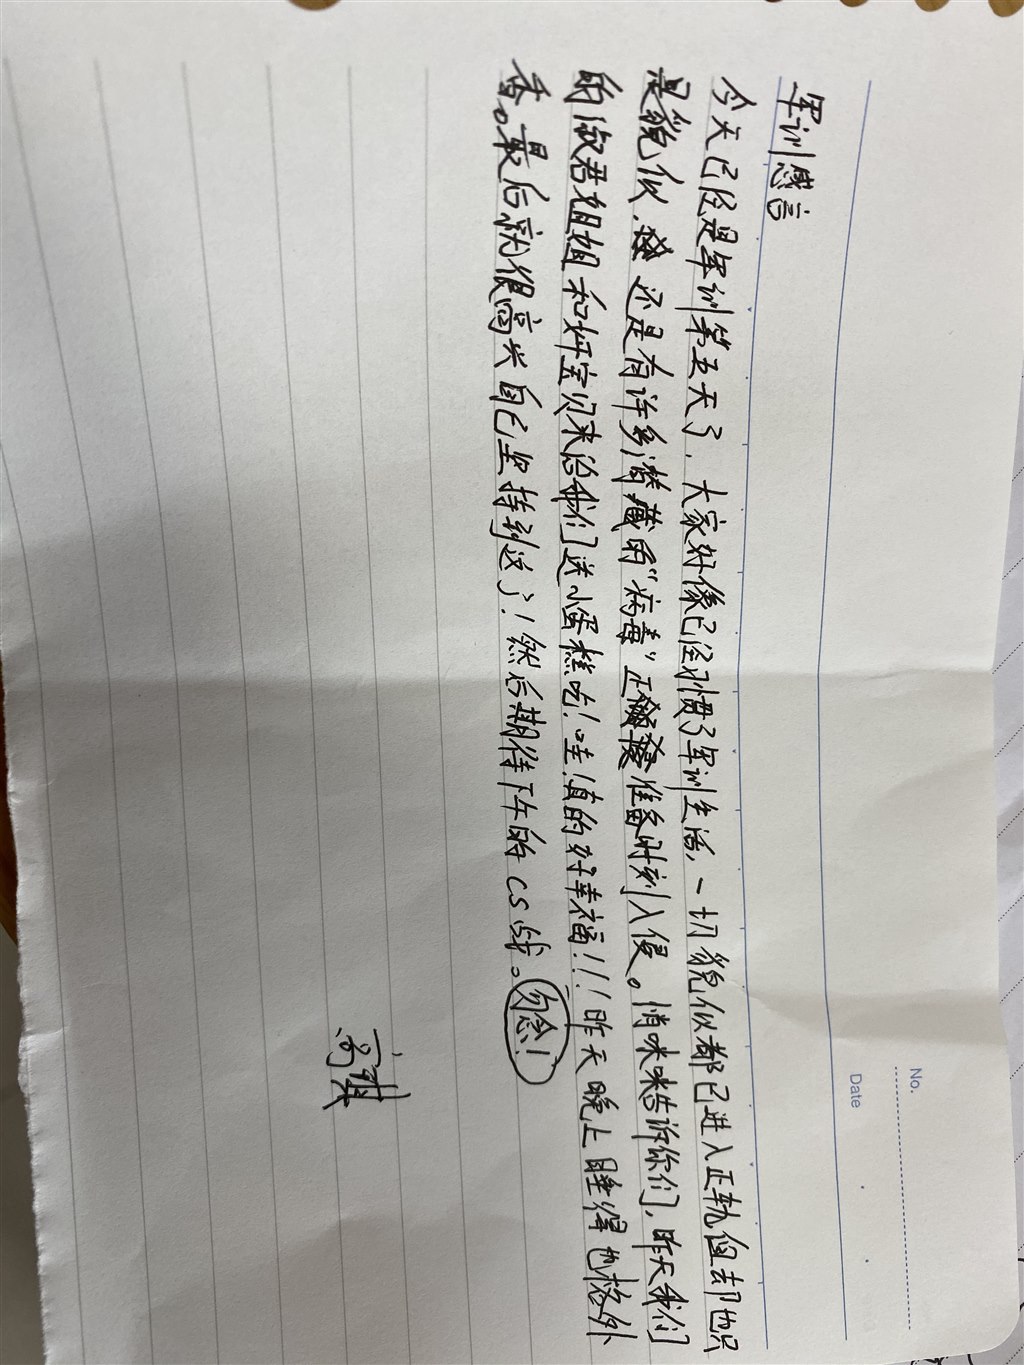 No.
Date
军训感言
今天已经是军训第五天了，大家好像已经习惯了军训生活，一切貌似都已进入正轨但却也只
是貌似，还是有许多潜藏的“病毒”正准备时刻入侵。悄咪咪告诉你们，昨天我们
的淑君姐姐和妍宝贝来给我们送小蛋糕吃！哇！真的好幸福！！！昨天晚上睡得也格外
香。最后就很高兴自己坚持到这了！然后期待下午的CS战。勿念！